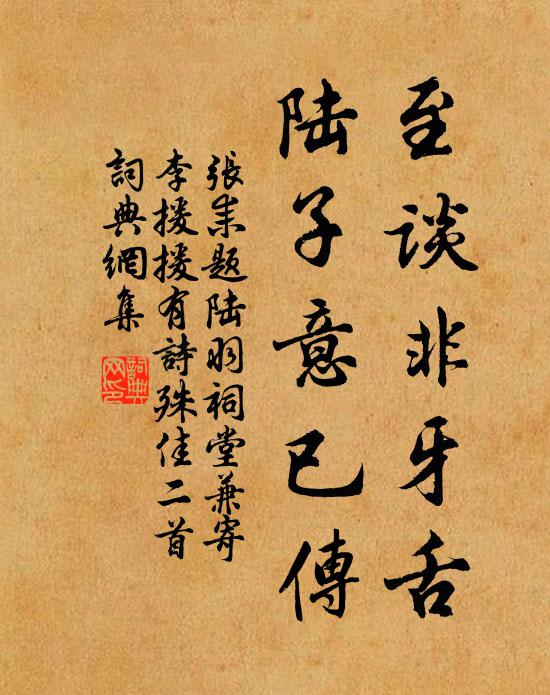 至談非牙舌
陸子意已傳
張耒題陸羽祠堂兼寄
李援援有詩殊佳二首
詞典網集
詞典网印